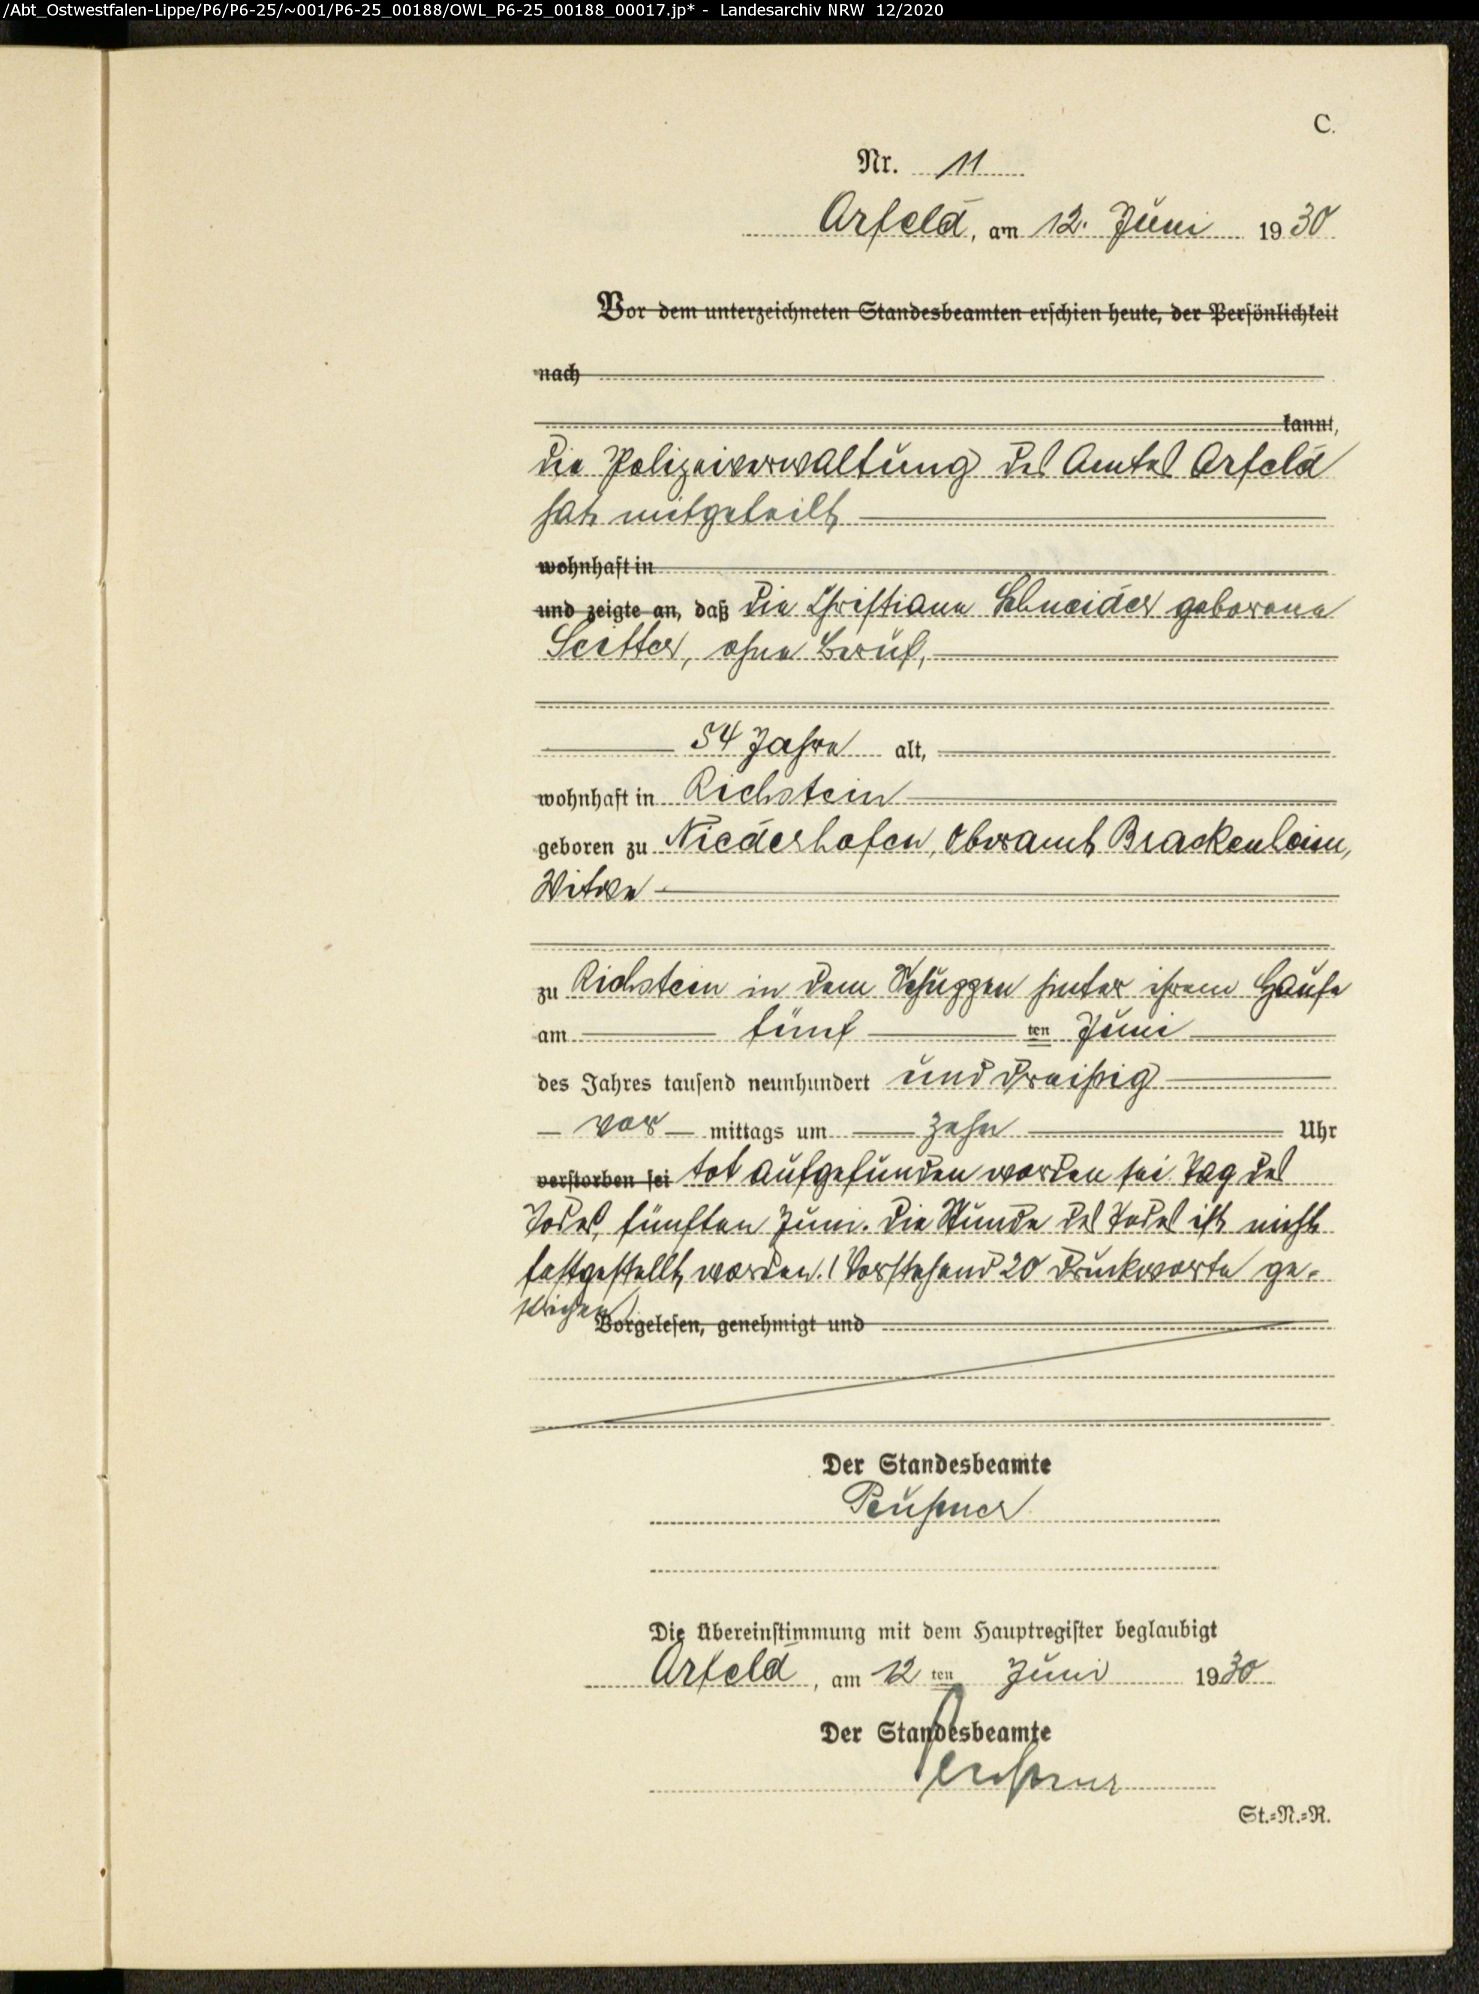 /Abt_Ostwestfalen-Lippe/P6/P6-25/~001/P6-25_00188/OWL_P6-25_00188_00017.jp* - Landesarchiv NRW 12/2020
C.
Nr. 11
Arfeld, am 12. Juni 1930
Vor dem unterzeichneten Standesbeamten erschien heute, der Persönlichkeit
nach
kannt,
die Polizeiverwaltung des Amtes Arfeld
hat mitgeteilt
wohnhaft in
und zeigte an, daß die Christiane Schneider geborene
Seitter, ohne Beruf,
54 Jahre alt,
wohnhaft in Richstein
geboren zu Niederhofen, Oberamt Brackenheim,
Witwe
zu Richstein in dem Schuppen hinter ihrem Hause
am fünf ten Juni
des Jahres tausend neunhundert und dreißig
vor mittags um zehn Uhr
verstorben sei tot aufgefunden worden sei. Tag des
Todes, fünften Juni. Die Stunde des Todes ist nicht
festgestellt worden. (Vorstehend 20 Druckworte ge-
strichen)
Vorgelesen, genehmigt und
Der Standesbeamte
Die Übereinstimmung mit dem Hauptregister beglaubigt
Arfeld, am 12 ten Juni 1930
Der Standesbeamte
St.=N.=R.